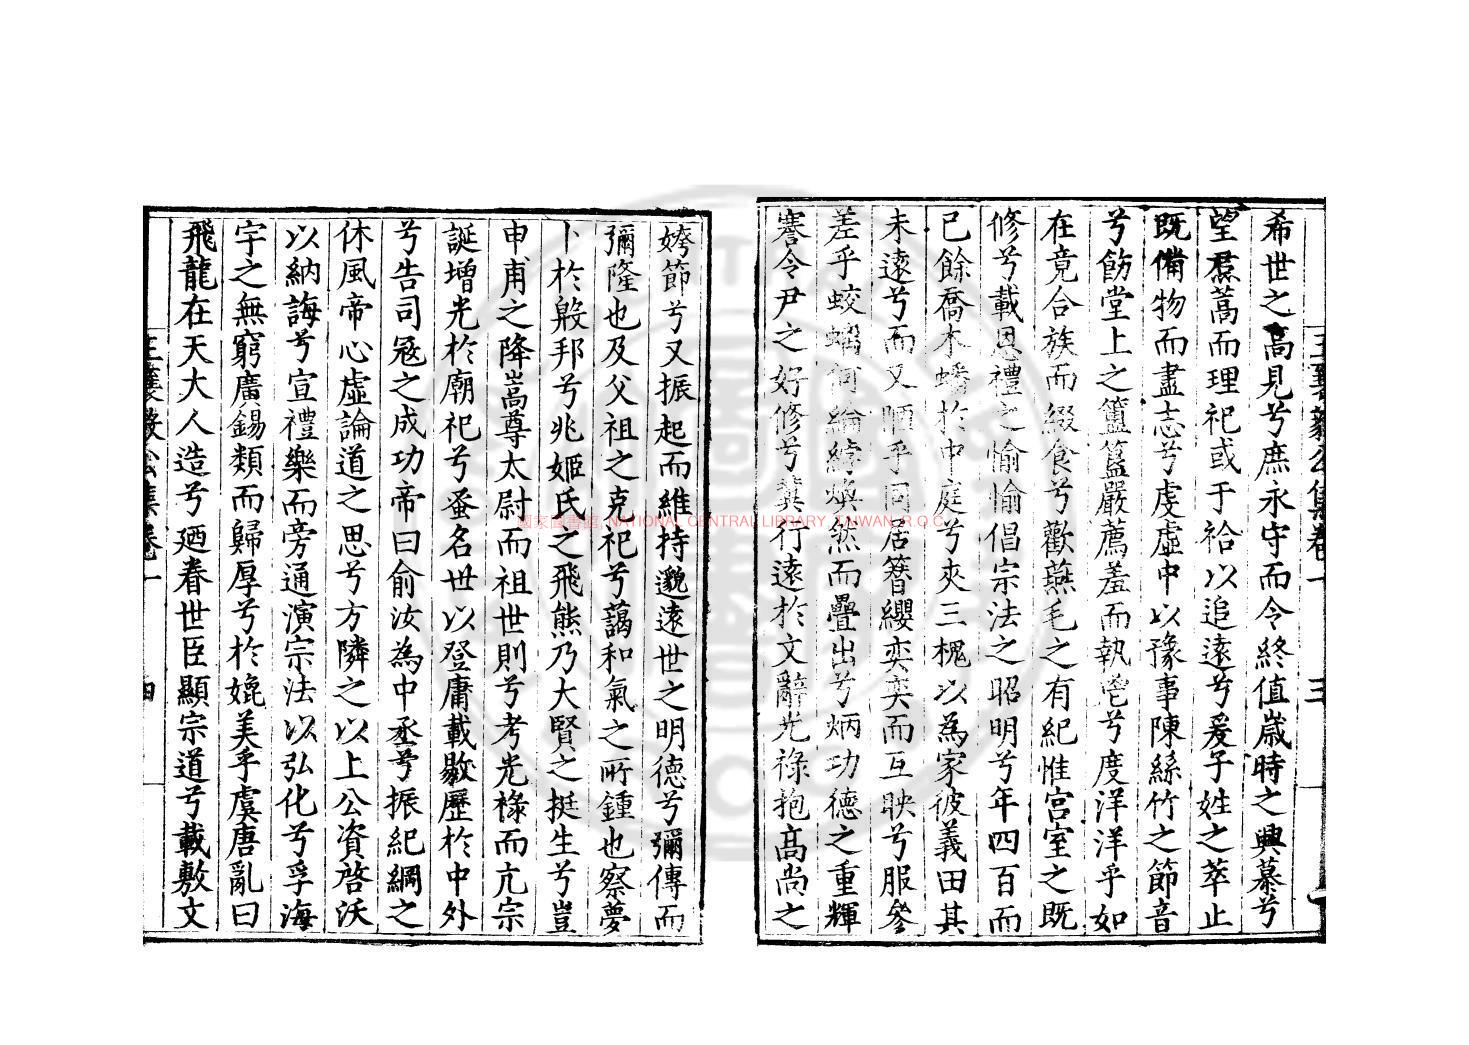 希世之高見兮庶永守而令終值歲時之興慕兮
望焄蒿而理祀或于祫以追遠兮爰子姓之萃止
既備物而盡志兮虔虛中以豫事陳絲竹之節音
兮飭堂上之簠簋嚴薦羞而執鬯兮度洋洋乎如
在竟合族而綴食兮歡燕毛之有紀惟宮室之既
修兮載恩禮之愉愉倡宗法之昭明兮年四百而
已餘喬木蟠於中庭兮夾三槐以為家彼義田其
未遠兮而又陋乎同居簪纓奕奕而互映兮服參
差乎蛟螭何綸綍煥然而疊出兮炳功德之重輝
謇令尹之好修兮冀行遠於文辭光祿抱高尚之
姱節兮又振起而維持邈遠世之明德兮彌傳而
彌隆也及父祖之克祀兮藹和氣之所鍾也察夢
卜於殷邦兮兆姬氏之飛熊乃大賢之挺生兮豈
申甫之降嵩尊太尉而祖世則兮考光祿而亢宗
誕增光於廟祀兮蚤名世以登庸載敭歷於中外
兮告司寇之成功帝曰俞汝為中丞兮振紀綱之
休風帝心虛論道之思兮方隣之以上公資啓沃
以納誨兮宣禮樂而旁通演宗法以弘化兮孚海
宇之無窮廣錫類而歸厚兮於媲美乎虞唐亂曰
飛龍在天大人造兮廼眷世臣顯宗道兮載敷文
王襄毅公集卷一
三
四
國家圖書館 NATIONAL CENTRAL LIBRARY, TAIWAN, R.O.C